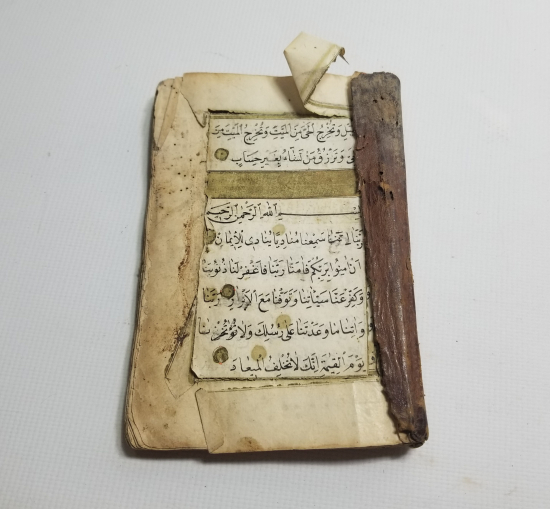 وَتُخْرِجُ الْحَيَّ مِنَ الْمَيِّتِ وَتُخْرِجُ الْمَيِّتَ مِنَ
وَتَرْزُقُ مَنْ تَشَاءُ بِغَيْرِ حِسَابٍ
بِسْمِ اللهِ الرَّحْمٰنِ الرَّحِيمِ
رَبَّنَا اِنَّنَا سَمِعْنَا مُنَادِيًا يُنَادِي لِلْاِيمَانِ
اَنْ اٰمِنُوا بِرَبِّكُمْ فَاٰمَنَّا رَبَّنَا فَاغْفِرْ لَنَا ذُنُوبَنَا
وَكَفِّرْ عَنَّا سَيِّاٰتِنَا وَتَوَفَّنَا مَعَ الْاَبْرَارِ رَبَّنَا
وَاٰتِنَا مَا وَعَدْتَنَا عَلٰى رُسُلِكَ وَلَا تُخْزِنَا
يَوْمَ الْقِيٰمَةِ اِنَّكَ لَا تُخْلِفُ الْمِيعَادَ